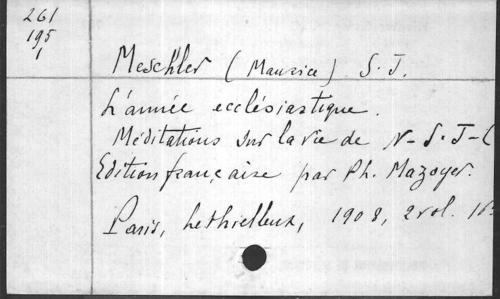 261
195
1
Meschler (Maurice) S. J.
L'année ecclésiastique.
Méditations sur la vie de N-S-J-C
Edition française par Ph. Mazoyer.
Paris, Lethielleux, 1908, 2 vol.